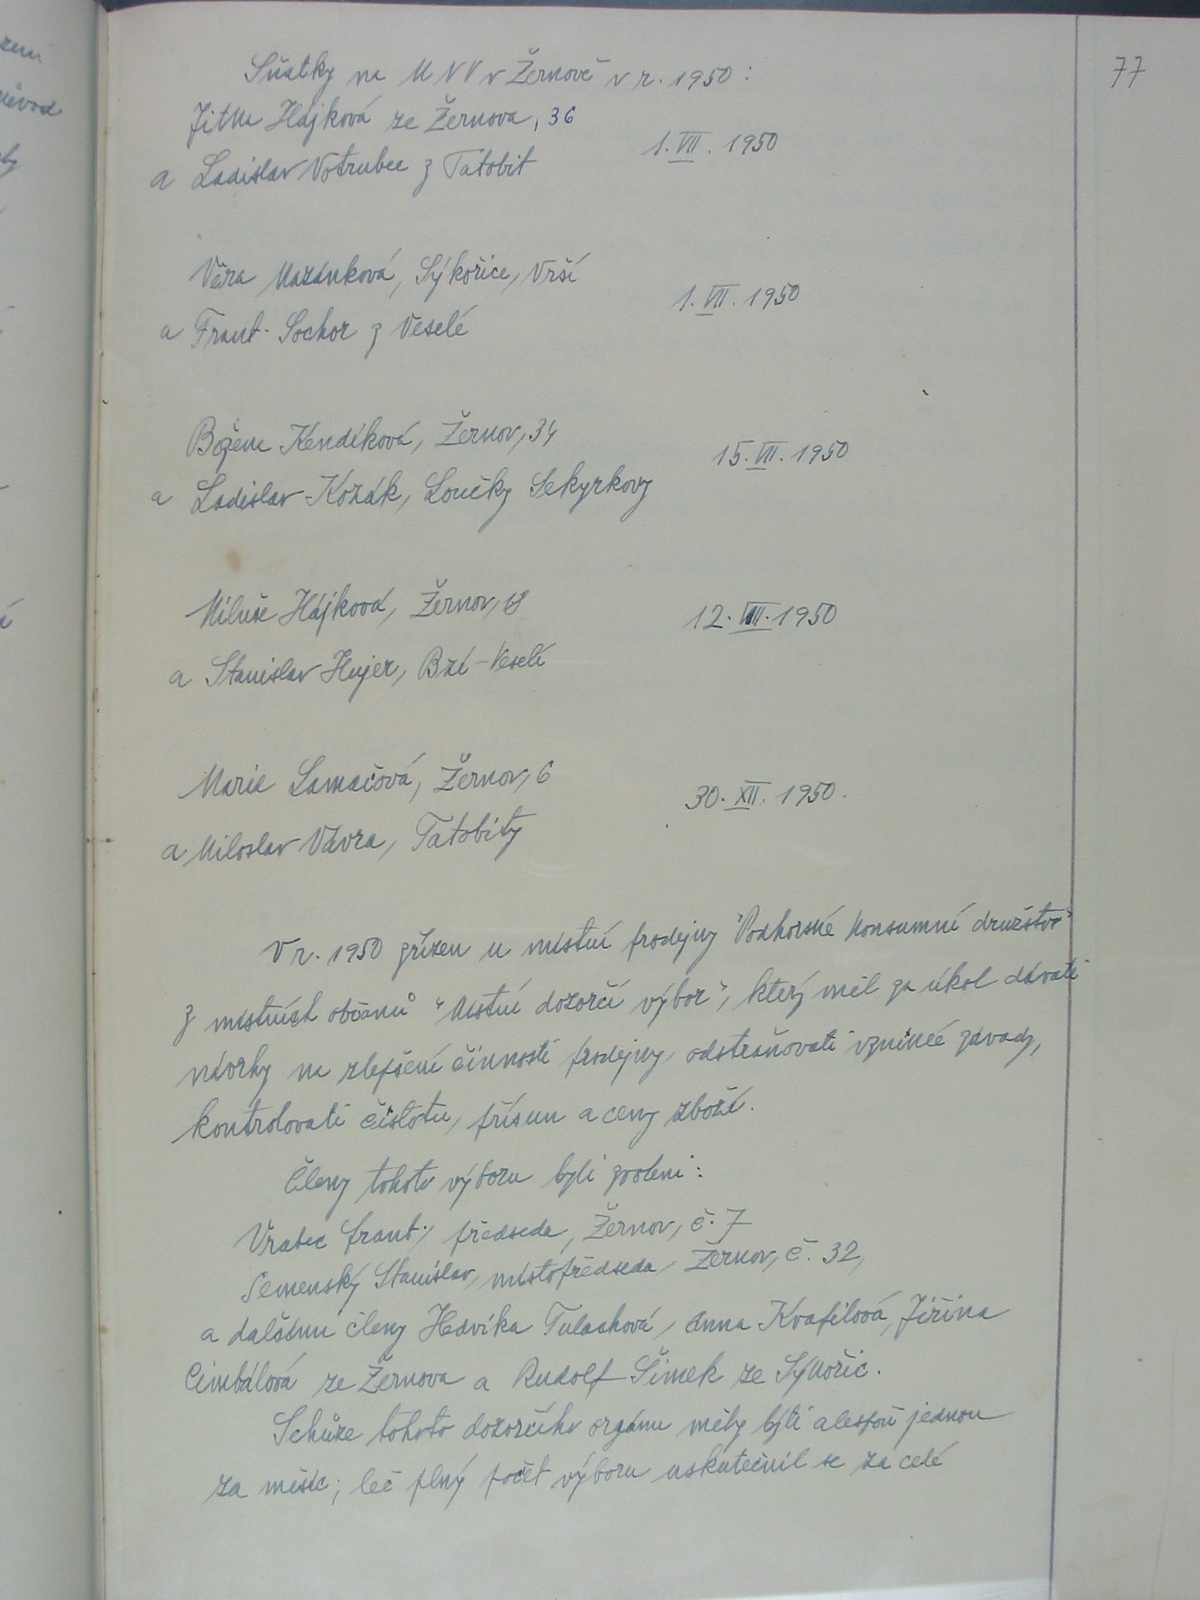 77
Sňatky na MNV v Žernově v r. 1950:
Jitka Hájková ze Žernova, 36
1. VII. 1950
a Ladislav Votrubec z Tatobit
Věra Mazánková, Sýkořice, Vrší
1. VII. 1950
a Frant. Sochor z Veselé
Božena Kendíková, Žernov, 34
15. VII. 1950
a Ladislav Kozák, Loučky Sekyrkovy
Miluše Hájková, Žernov,
12. VIII. 1950
a Stanislav Hujer, Bzí-Veselí
Marie Lamačová, Žernov, 6
30. XII. 1950.
a Miloslav Vávra, Tatobity
V r. 1950 zřízen u místní prodejny "Podhorské konsumní družstvo"
z místních občanů "Místní dozorčí výbor", který měl za úkol dávati
návrhy na zlepšení činnosti prodejny, odstraňovati vzniklé závady,
kontrolovati čistotu, přísun a ceny zboží.
Členy tohoto výboru byli zvoleni:
Vrabec Frant., předseda, Žernov, č. 7
Semenský Stanislav, místopředseda, Žernov, č. 32,
a dalšími členy Hedvika Tulachová, Anna Kvapilová, Jiřina
Cimbálová ze Žernova a Rudolf Šimek ze Sýkořic.
Schůze tohoto dozorčího orgánu měly býti alespoň jednou
za měsíc; leč plný počet výboru uskutečnil se za celé